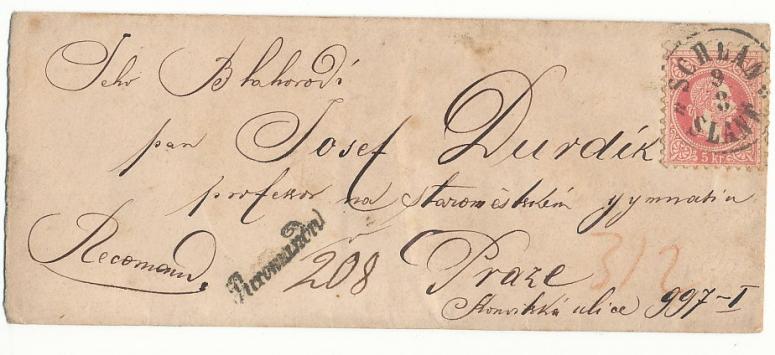 Jeho Blahorodí
pan Josef Durdík
profesor na Staroměstském gymnasiu
v Praze
Recomand.
Recomandirt
208
312
ulice 997-I
SCHLAN
9
3
SLANÝ
5 kr.